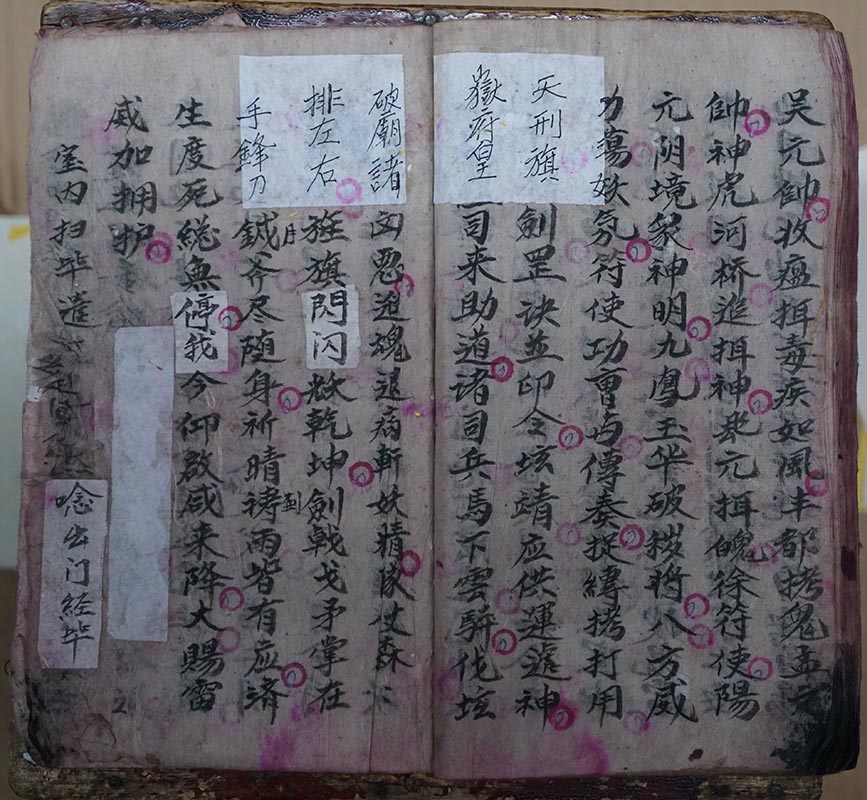 吴元帅收瘟抇毒疾如風丰都拷鬼孟元
帥神虎河桥追抇神来元抇魄徐符使陽
元阴境衆神明九鳳玉华破秽将八方威
力蕩妖氛符使功曹与傳奏捉縛拷打用
天刑旗劍罡訣並印令坛靖应供運遽神
嶽府皇司来助道诸司兵馬下雲軿伐坛
破廟諸凶惡追魂退病斬妖精隊仗森
排左右旌旗閃闪妖乾坤劍戟戈矛掌在
手鋒刀鉞斧尽随身祈晴祷雨皆有应済
生度死総無停我今仰啟咸来降大賜雷
威加拥护
室内扫毕遣
唸出门經毕